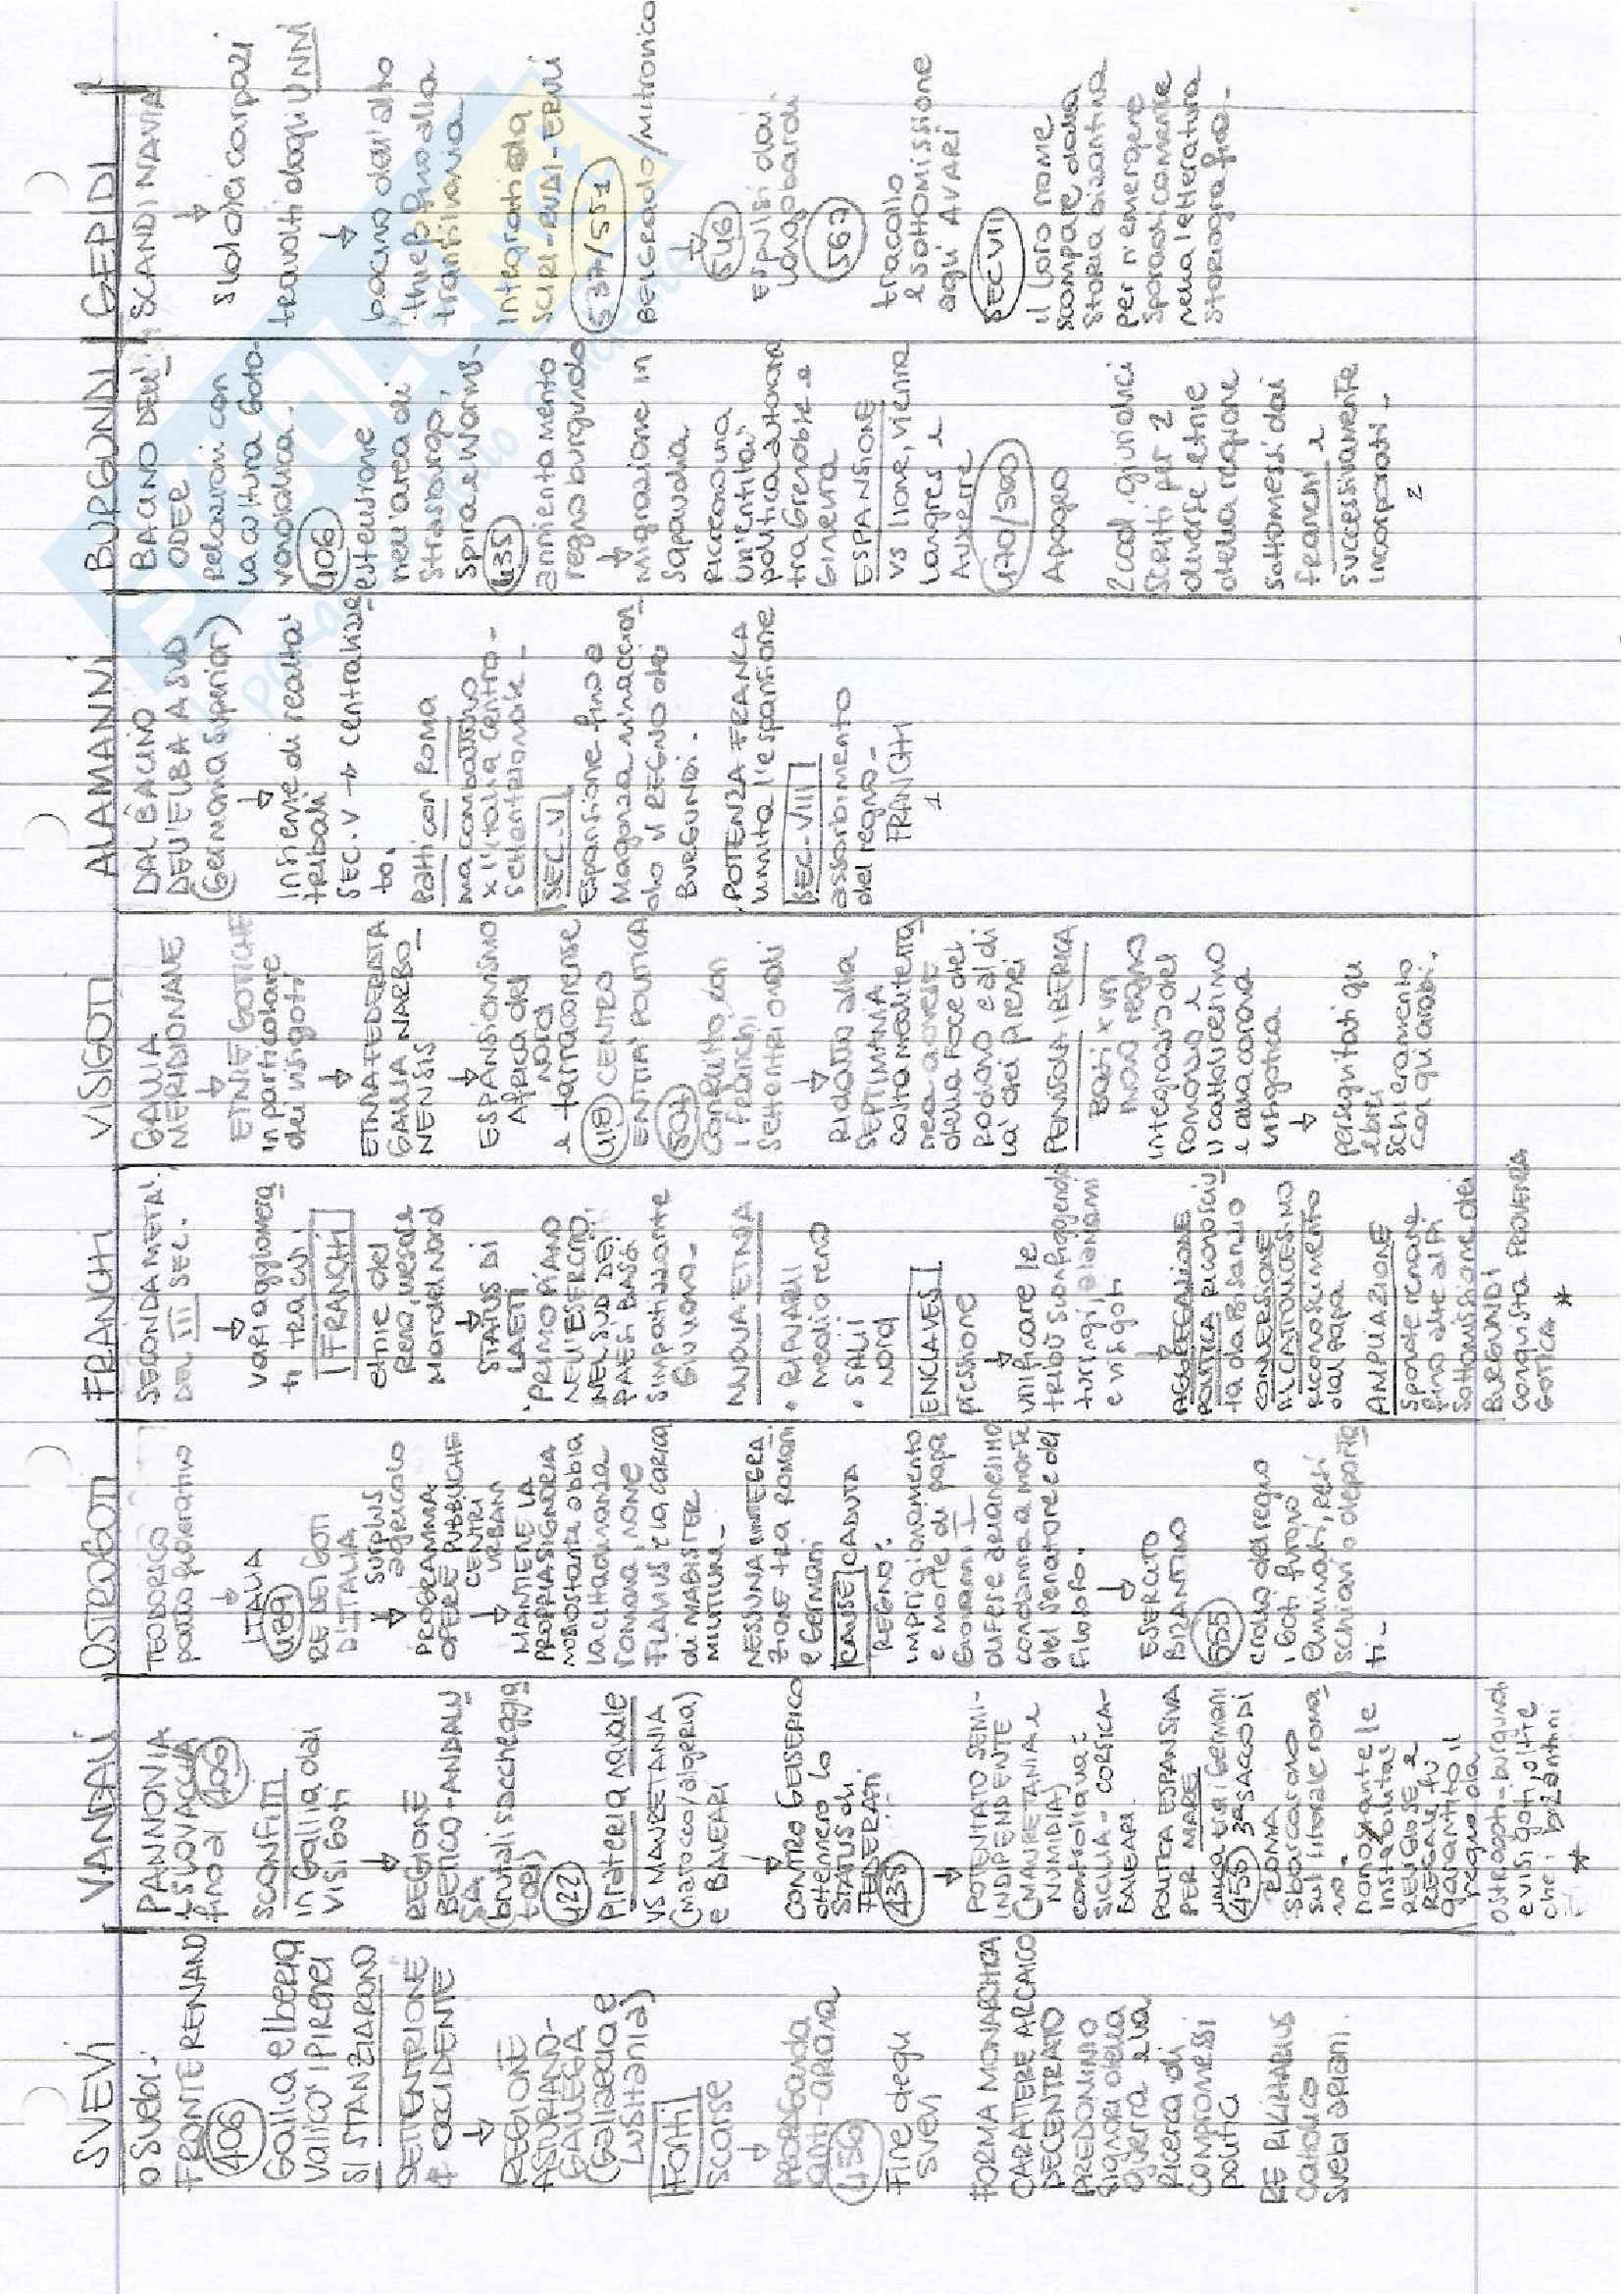 SVEVI
o Suebi:
FRONTE RENANO
406
Gallia e Iberia
valico' i Pirenei
SI STANZIARONO
SETTENTRIONE
OCCIDENTE
↓
REGIONE
ASTURIANO-
GALLEGA
(Gallaecia e
Lusitania)
FONTI
scarse
↓
PROPAGANDA
anti-ariana
456
Fine degli
svevi
FORMA MONARCHICA
CARATTERE ARCAICO
DECENTRATO
PREDOMINIO
signori della
guerra e la
ricerca di
compromessi
politici
RE
cattolico
Suebi ariani.
VANDALI
PANNONIA
e SLOVACCHIA
fino al 406
SCONFITTI
in Gallia dai
VISIGOTI
↓
REGIONE
BETICO+ANDALU
SA.
(brutali saccheggia
tori)
422
Pirateria navale
VS MAURETANIA
(marocco/algeria)
e BALEARI
↓
CONTRO GEISERICO
ottennero lo
STATUS di
FEDERATI.
435
↓
POTENTATO SEMI-
INDIPENDENTE
(MAURETANIA e
NUMIDIA)
controllava:
SICILIA - CORSICA-
BALEARI.
POLITICA ESPANSIVA
PER MARE
unica tra i Germani
455 3° SACCO DI
ROMA
sbarcarono
sul litorale roma
no.
nonostante le
instabilità
RELIGIOSE e
REGALE fu
garantito il
regno da
ostrogoti-burgundi
e visigoti, oltre
che i bizantini
*
OSTROGOTI
TEODORICO
patto federativo
↓
ITALIA
489
RE DEI GOTI
D'ITALIA
surplus
agricolo
↓
PROGRAMMA
OPERE PUBBLICHE
CENTRI
URBANI
↓
MANTIENE LA
PROPRIA SIGNORIA
nonostante abbia
la cittadinanza
romana, nome
FLAVIUS e la carica
di MAGISTER
MILITUM.
NESSUNA INTEGRA
ZIONE tra ROMANI
e GERMANI
CAUSE CADUTA
REGNO:
imprigionamento
e morte di papa
Giovanni I
difere arianesimo
condanna a morte
del senatore e del
filosofo.
↓
ESERCITO
BIZANTINO
555
crollo del regno
i Goti furono
eliminati, resi
schiavi o deporta
ti-
FRANCHI
SECONDA META'
DEL III SEC.
↓
vari agglomera
ti tra cui i
FRANCHI
etnie del
Reno, Weser e
Mar del Nord
↓
STATUS DI
LAETI
PRIMO PIANO
NELL'ESERCITO.
NEL SUD DEI
PAESI BASSI
simpatizzante
Giuliano.
NUOVA ETNIA
• RIPUARI
medio reno
• SALII
nord
ENCLAVES
pressione
↓
unificare le
tribù sconfiggendo
turingi, alamanni
e visigoti
↓
AGGREGAZIONE
POLITICA riconosciu
ta da Bisanzio
CONVERSIONE
AL CATTOLICESIMO
riconoscimento
dal papa
AMPLIAZIONE
sponde renane
fino alle alpi
sottomissione dei
BURGUNDI
conquista PROVENZA
GOTICA *
VISIGOTI
GALLIA
MERIDIONALE
↓
ETNIE GOTICHE
in particolare
dei visigoti
↓
ETNIA FEDERATA
GALLIA NARBO
NENSIS
↓
ESPANSIONISMO
Africa del
nord
e tarraconense
418 CENTRO
ENTITA' POLITICA
507
conflitto con
i franchi
settentrionali
↓
Ridotto alla
SEPTIMANIA
costa mediterra
nea a ovest
della foce del
Rodano e al di
la' dei pirenei
PENISOLA IBERICA
Basi x un
nuovo regno
integrazione del
romano e
il cattolicesimo
e alla corona
visigotica
↓
perseguitati gli
ebrei
schieramento
con gli arabi.
ALAMANNI
DAL BACINO
DELL'ELBA A SUD
(Germania superior)
↓
insieme di realta'
tribali
SEC.V → centralizza
to.
Patti con ROMA
ma combattono
x l'italia centro-
settentrionale
SEC.V
Espansione fino a
Magonza minaccian
do il REGNO dei
BURGUNDI.
.POTENZA FRANCA
limita l'espansione
SEC.VIII
assorbimento
del regno-
FRANCHI
1
BURGUNDI
BACINO DELL'
ODER
Relazioni con
la cultura Goto-
vandalica.
406 estensione
nell'area di
Strasburgo,
Spira e Worms.
435
annientamento
regno burgundo
↓
migrazione in
Sapaudia.
Ricreano una
un'entita'
politica autonoma
tra Grenoble e
Ginevra
ESPANSIONE
vs lione, vienna
Langres e
Auxerre
470/500
Apogeo
2 cod. giuridici
scritti per 2
diverse etnie
della regione
sottomessi dai
franchi e
successivamente
incorporati-
2
GEPIDI
SCANDINAVIA
↓
sud dei carpazi
travolti dagli UNNI
↓
bacino dell'alto
theiß fino alla
transilvania
Integrati da
SCIRI-RUGI-ERULI
537/551
BELGRADO/Mitronica
↓
546
espulsi dai
longobardi
567
tracollo
e sottomissione
agli AVARI
SEC VII
il loro nome
scompare dalla
storia bizantina
per riemergere
sporadicamente
nella letteratura
storiografica-